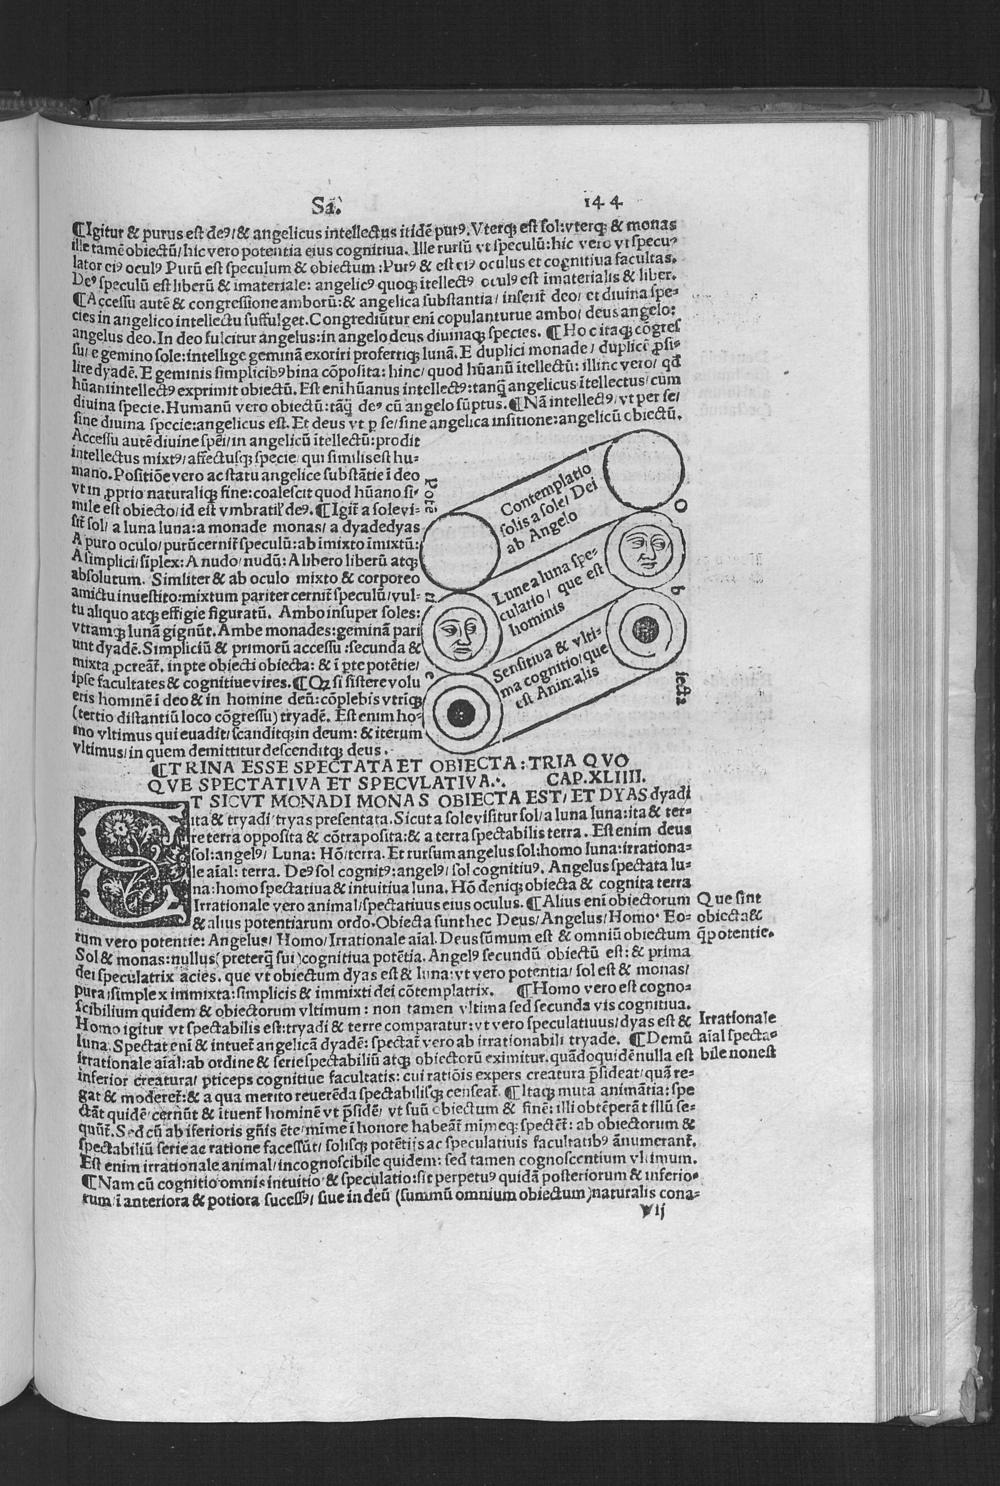 Sa.
144
¶Igitur & purus est deꝰ/& angelicus intellectus itidē purꝰ. Vterqꝫ est sol: vterqꝫ & monas
ille tamē obiectū/hic vero potentia eius cognitiua. Ille rursū vt speculū: hic vero vt specu-
lator eiꝰ oculꝰ Purū est speculum & obiectum: Purꝰ & est eiꝰ oculus et cognitiua facultas.
Deꝰ speculū est liberū & imateriale: angelicꝰ quoqꝫ itellectꝰ oculꝰ est imaterialis & liber.
¶Accessu autē & congressione amborū: & angelica substantia/ inserit̄ deo/ et diuina spe-
cies in angelico intellectu suffulget. Congrediūtur eni copulanturue ambo/ deus angelo:
angelus deo. In deo fulcitur angelus: in angelo deus diuinaqꝫ species. ¶Hoc itaqꝫ cōgres
su/ e gemino sole: intellige geminā exoriri proferriqꝫ lunā. E duplici monade/ duplicē ꝓsi-
lire dyadē. E geminis simplicibꝰ bina cōposita: hinc/ quod hūanū itellectū: illinc vero/ qđ
hūani intellectꝰ exprimit obiectū. Est eni hūanus intellectꝰ: tanqꝫ angelicus itellectus/ cum
diuina specie. Humanū vero obiectū: tāqꝫ deꝰ cū angelo sūptus. ¶Nā intellectꝰ/ vt per se/
sine diuina specie: angelicus est. Et deus vt p se/ sine angelica insitione: angelicū obiectū.
Accessu autē diuine spēi/ in angelicū itellectū: prodit
intellectus mixtꝰ/ affectusqꝫ specie/ qui similis est hu-
mano. Positiōe vero ac statu angelice substātie i deo
vt in ꝓprio naturaliqꝫ fine: coalescit quod hūano si-
mile est obiecto/ id est vmbratilꝭ deꝰ. ¶Igit̄ a sole vi-
sit̄ sol/ a luna luna: a monade monas/ a dyade dyas
A puro oculo/ purū cernit̄ speculū: ab imixto imixtū:
A simplici/ siplex: A nudo/ nudū: A libero liberū atqꝫ
absolutum. Similiter & ab oculo mixto & corporeo
amictu inuestito: mixtum pariter cernit̄ speculū/ vul-
tu aliquo atqꝫ effigie figuratū. Ambo insuper soles:
vtramqꝫ lunā gignūt. Ambe monades: geminā pari
unt dyadē. Simpliciū & primorū accessu: secunda &
mixta ꝓcreāt̄. in pte obiecti obiecta: & i pte potētie/
ipse facultates & cognitiue vires. ¶Qꝫ si sistere volu
eris hominē i deo & in homine deū: cōplebis vtriqꝫ
(tertio distantiū loco cōgressu) tryadē. Est enim ho-
mo vltimus qui euadit/ scanditqꝫ in deum: & iterum
vltimus/ in quem demittitur descenditqꝫ deus.
Potē
ti
e
Contemplatio
solis a sole/ Dei
ab Angelo
Lune a luna spe-
culatio/ que est
hominis
Sensitiua & vlti-
ma cognitio/ que
est Animalis
O
b
iecta
¶TRINA ESSE SPECTATA ET OBIECTA: TRIA QVO
QVE SPECTATIVA ET SPECVLATIVA. CAP.XLIIII.
ET SICVT MONADI MONAS OBIECTA EST/ ET DYAS dyadi
ita & tryadi tryas presentata. Sicut a sole visitur sol/ a luna luna: ita & ter-
re terra opposita & cōtraposita: & a terra spectabilis terra. Est enim deus
sol: angelꝰ/ Luna: Hō/ terra. Et rursum angelus sol: homo luna: irrationa-
le aīal: terra. Deꝰ sol cognitꝰ: angelꝰ/ sol cognitiuꝰ. Angelus spectata lu-
na: homo spectatiua & intuitiua luna. Hō deniqꝫ obiecta & cognita terra
Irrationale vero animal/ spectatiuus eius oculus. ¶Alius eni obiectorum
& alius potentiarum ordo. Obiecta sunt hec Deus/ Angelus/ Homo. Eo-
rum vero potentie: Angelus/ Homo/ Irrationale aīal. Deus sūmum est & omniū obiectum
Sol & monas: nullus (preterqꝫ sui) cognitiua potētia. Angelꝰ secundū obiectū est: & prima
dei speculatrix acies. que vt obiectum dyas est & luna: vt vero potentia/ sol est & monas/
pura/ simplex immixta: simplicis & immixti dei cōtemplatrix. ¶Homo vero est cogno-
scibilium quidem & obiectorum vltimum: non tamen vltima sed secunda vis cognitiua.
Homo igitur vt spectabilis est: tryadi & terre comparatur: vt vero speculatiuus/ dyas est &
luna. Spectat eni & intuet̄ angelicā dyadē: spectat̄ vero ab irrationabili tryade. ¶Demū
irrationale aīal: ab ordine & serie spectabiliū atqꝫ obiectorū eximitur. quādoquidē nulla est
inferior creatura/ pticeps cognitiue facultatis: cui ratiōis expers creatura p̄sideat/ quā re-
gat & moderet̄: & a qua merito reuerēda spectabilisqꝫ censeat̄. ¶Itaqꝫ muta animātia: spe
ctāt quidē/ cernūt & ituent̄ hominē vt p̄sidē/ vt suū obiectum & finē: illi obtēperāt illū se-
quūt̄. Sed cū ab iferioris gn̄is ēte/ mīme i honore habeāt̄ mīmeqꝫ spectēt̄: ab obiectorum &
spectabiliū serie ac ratione facessūt/ solisqꝫ potētijs ac speculatiuis facultatibꝰ ānumerant̄.
Est enim irrationale animal/ incognoscibile quidem: sed tamen cognoscentium vltimum.
¶Nam cū cognitio omnis intuitio & speculatio: sit perpetuꝰ quidā posteriorum & inferio-
rum/ i anteriora & potiora sucessꝰ/ siue in deū (summū omnium obiectum) naturalis cona-
Que sint
obiecta &
q̄ potentie.
Irrationale
aīal specta-
bile non est
v ij